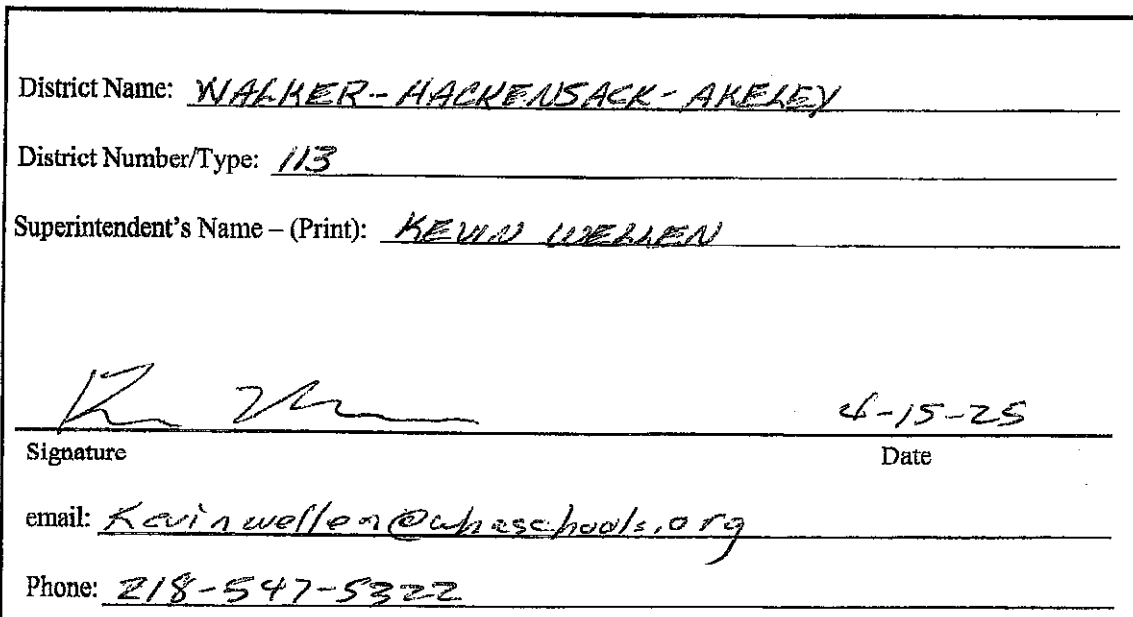 District Name: WALKER-HACKENSACK-AKELEY
District Number/Type: 113
Superintendent's Name – (Print): KEVIN WELLEN
4-15-25
Signature Date
email: Kevinwellen@whaschools.org
Phone: 218-547-5322